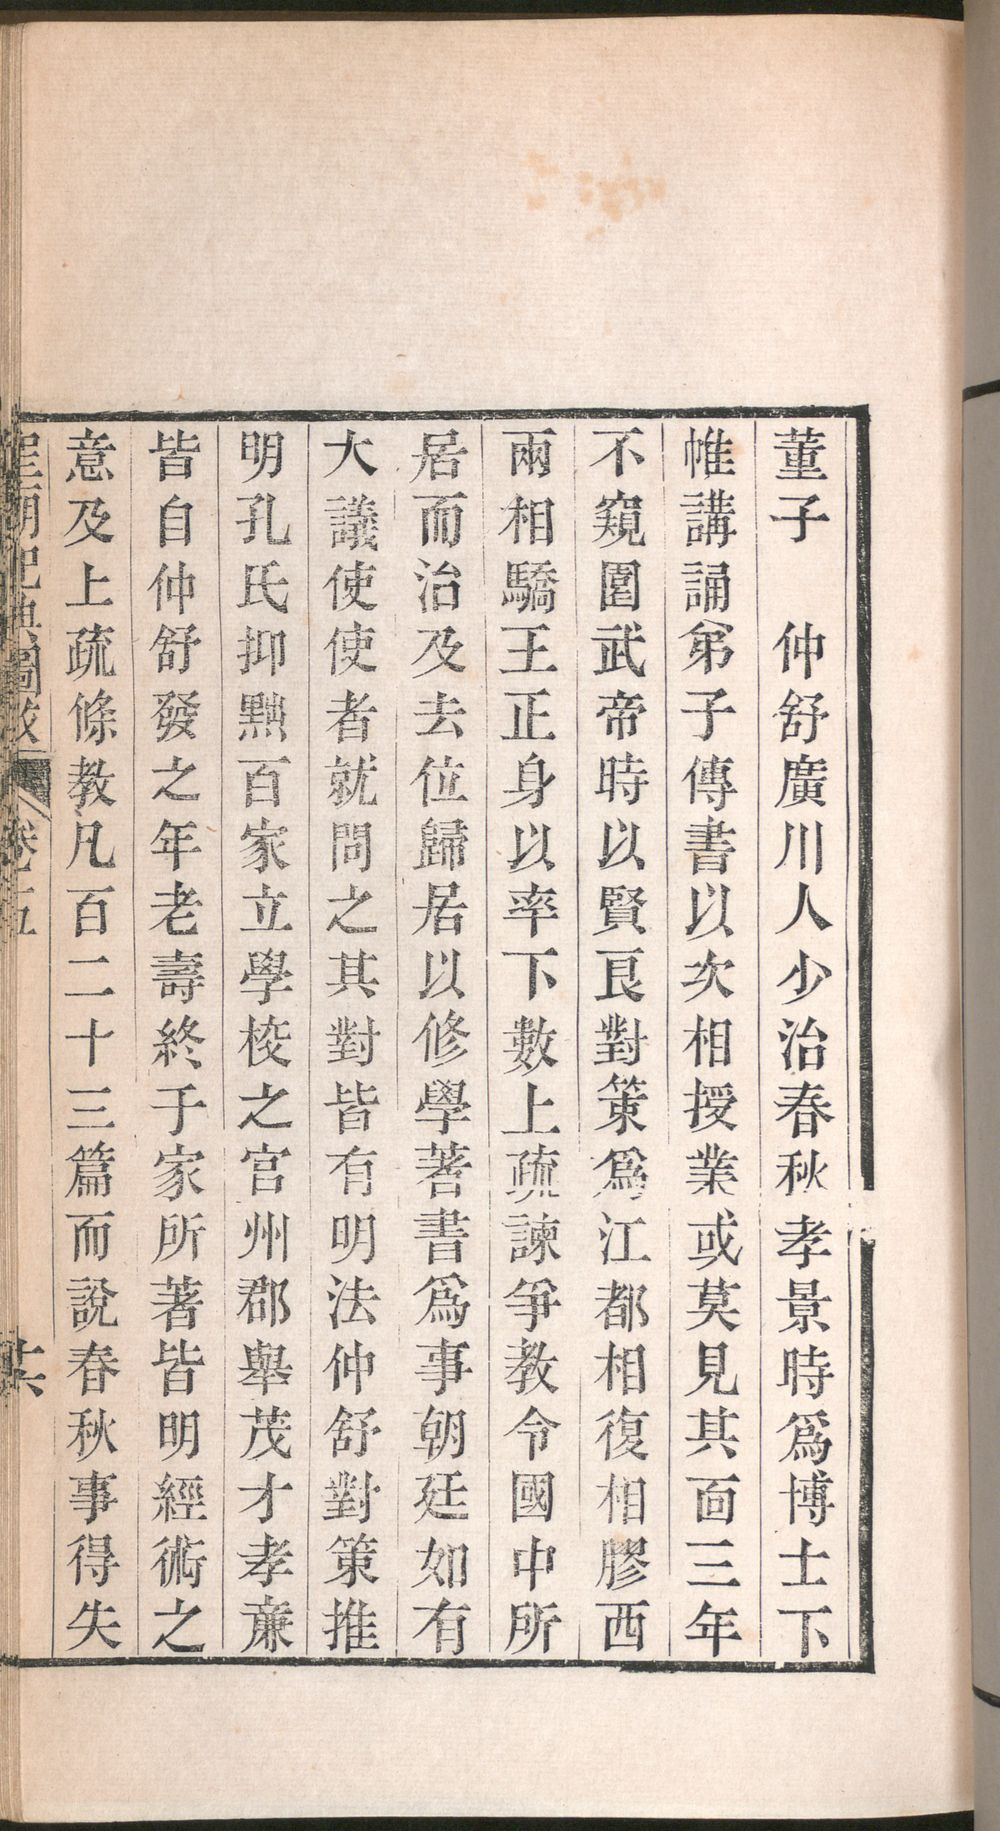 董子　仲舒廣川人少治春秋孝景時爲博士下
帷講誦弟子傳書以次相授業或莫見其面三年
不窺園武帝時以賢良對策爲江都相復相膠西
兩相驕王正身以率下數上疏諫爭教令國中所
居而治及去位歸居以修學著書爲事朝廷如有
大議使使者就問之其對皆有明法仲舒對策推
明孔氏抑黜百家立學校之官州郡舉茂才孝廉
皆自仲舒發之年老壽終于家所著皆明經術之
意及上疏條教凡百二十三篇而說春秋事得失
卷五
廿六